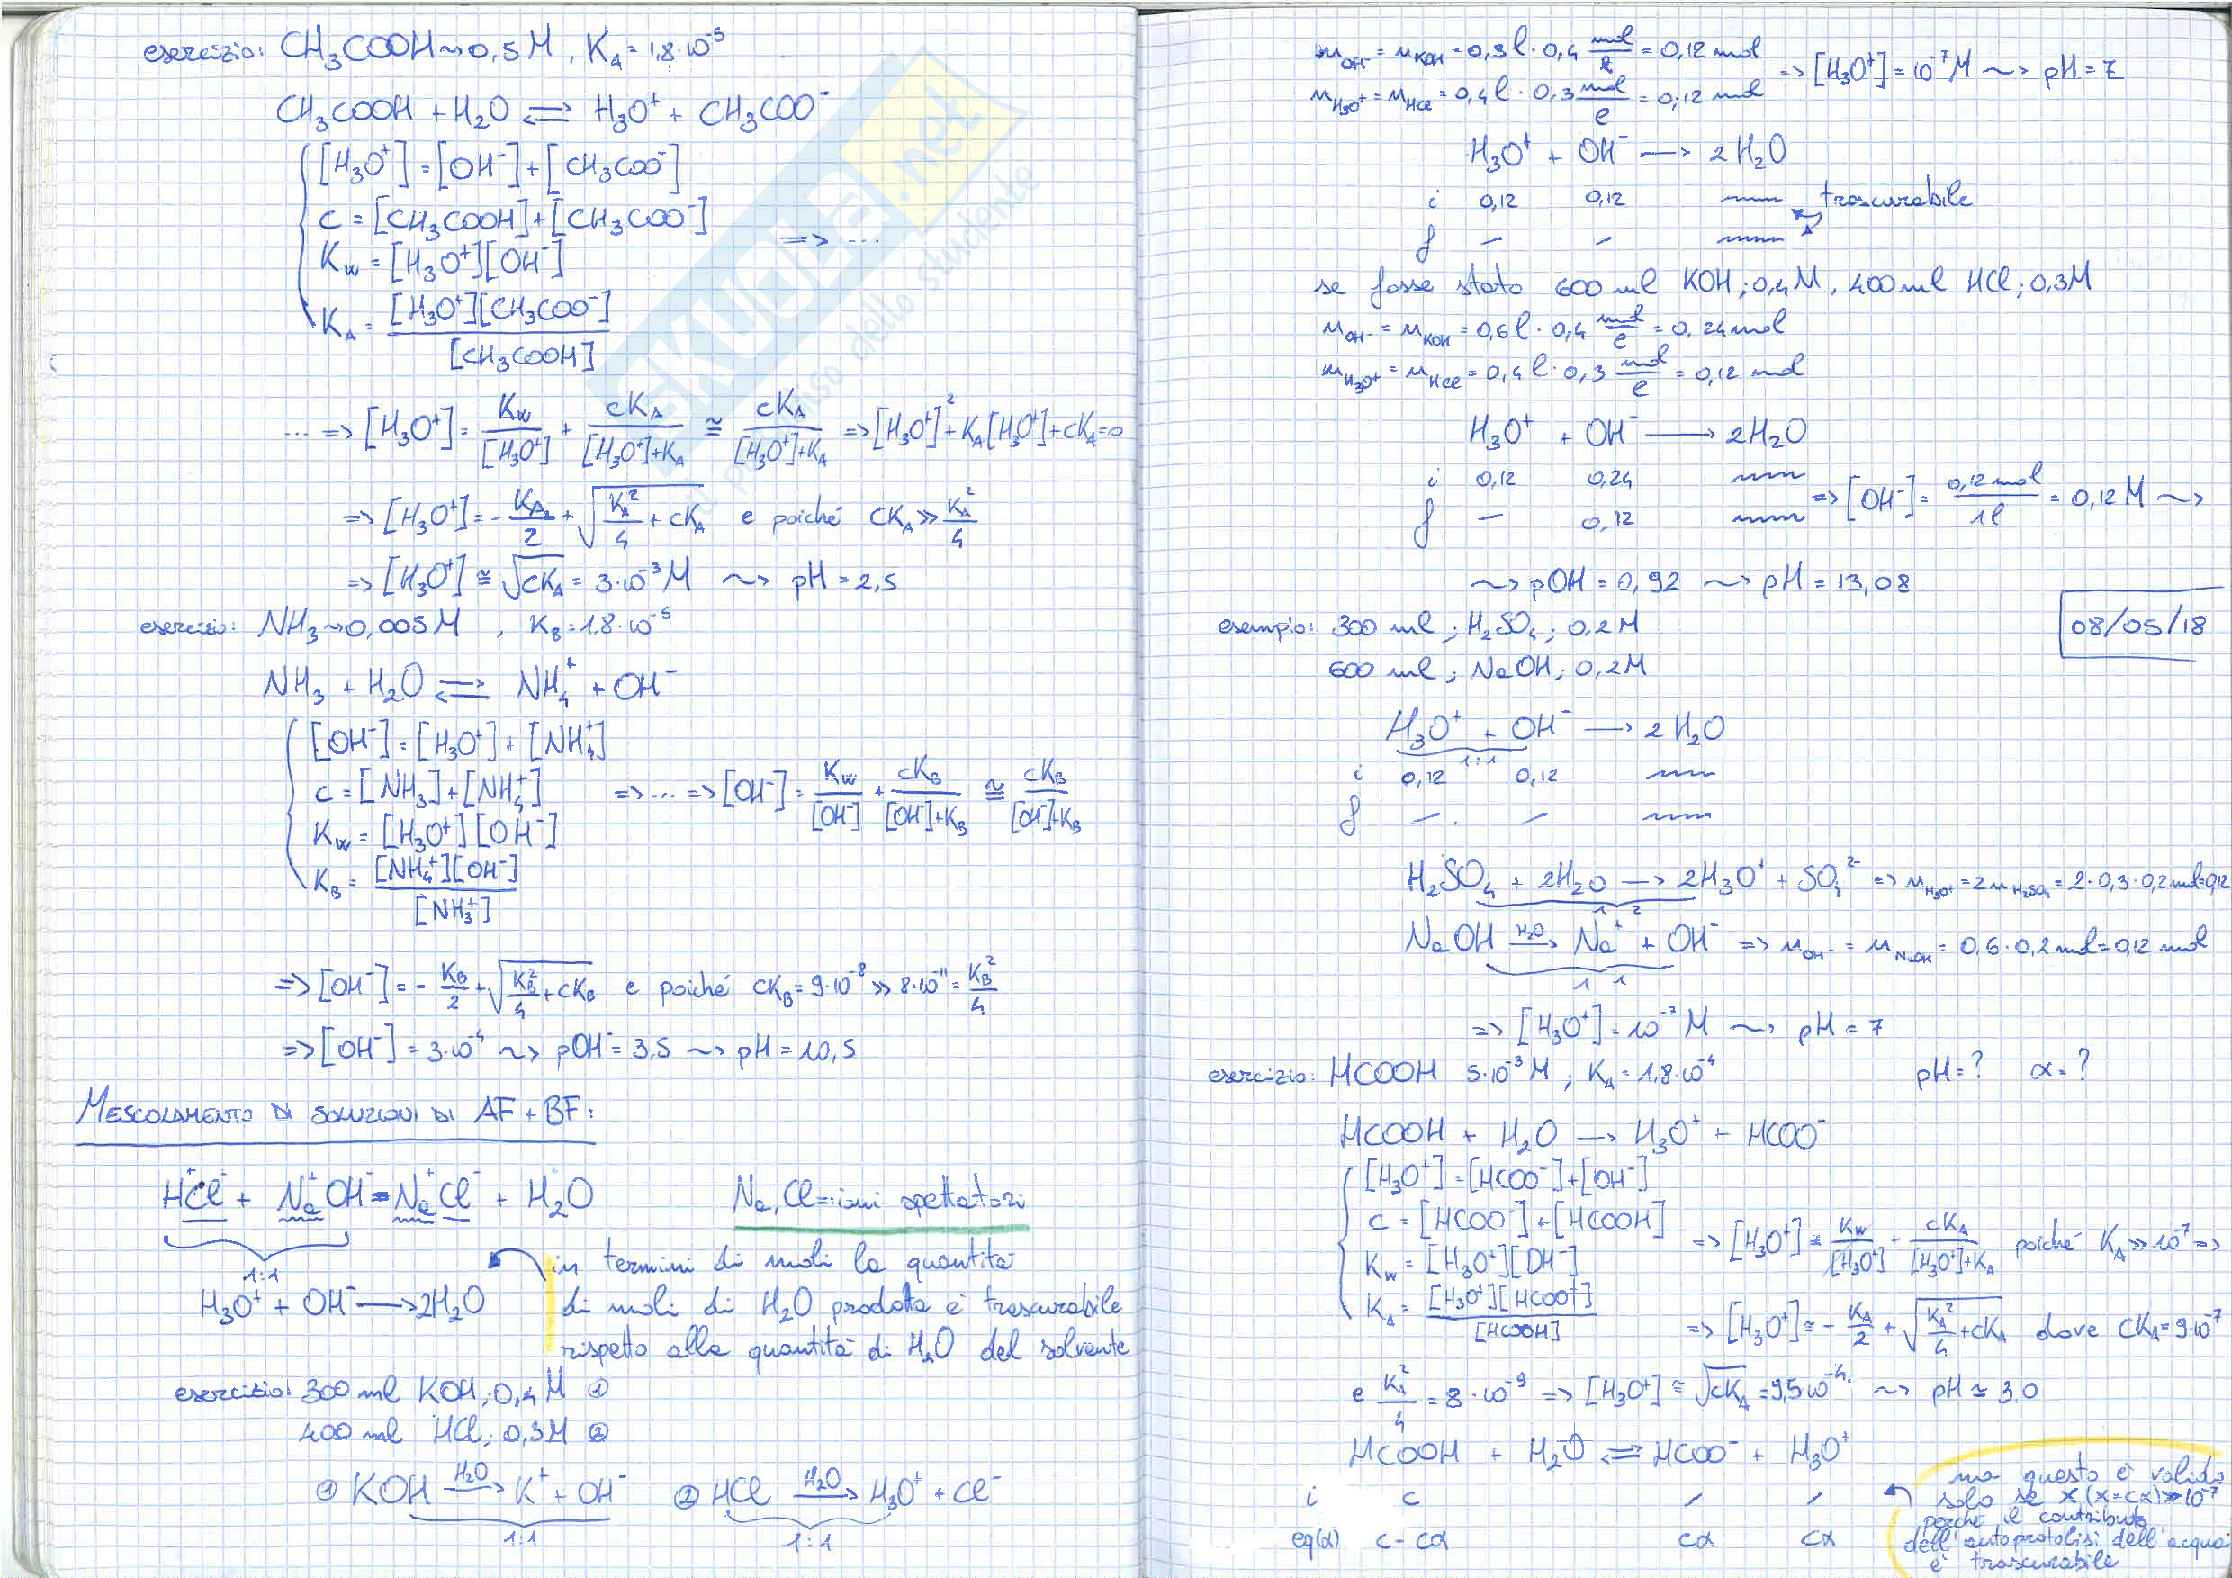 esercizio: CH₃COOH ~> 0,5 M, K_A = 1,8·10⁻⁵
CH₃COOH + H₂O ⇌ H₃O⁺ + CH₃COO⁻
[H₃O⁺] = [OH⁻] + [CH₃COO⁻]
c = [CH₃COOH] + [CH₃COO⁻]
=> ...
K_w = [H₃O⁺][OH⁻]
K_A = [H₃O⁺][CH₃COO⁻] / [CH₃COOH]
... => [H₃O⁺] = K_w/[H₃O⁺] + cK_A/([H₃O⁺]+K_A) ≅ cK_A/([H₃O⁺]+K_A) => [H₃O⁺]² + K_A[H₃O⁺] + cK_A = 0
=> [H₃O⁺] = - K_A/2 + √(K_A²/4 + cK_A) e poiché cK_A >> K_A²/4
=> [H₃O⁺] ≅ √cK_A = 3·10⁻³ M ~> pH = 2,5
esercizio: NH₃ ~> 0,005 M, K_B = 1,8·10⁻⁵
NH₃ + H₂O ⇌ NH₄⁺ + OH⁻
[OH⁻] = [H₃O⁺] + [NH₄⁺]
c = [NH₃] + [NH₄⁺] => ... => [OH⁻] = K_w/[OH⁻] + cK_B/([OH⁻]+K_B) ≅ cK_B/([OH⁻]+K_B)
K_w = [H₃O⁺][OH⁻]
K_B = [NH₄⁺][OH⁻] / [NH₃⁺]
=> [OH⁻] = - K_B/2 + √(K_B²/4 + cK_B) e poiché cK_B = 9·10⁻⁸ >> 8·10⁻¹¹ = K_B²/4
=> [OH⁻] = 3·10⁻⁴ ~> pOH⁻ = 3,5 ~> pH = 10,5
MESCOLAMENTO DI SOLUZIONI DI AF + BF:
H⁺Cl⁻ + Na⁺OH⁻ = Na⁺Cl⁻ + H₂O Na, Cl = ioni spettatori
1:1
H₃O⁺ + OH⁻ → 2H₂O
in termini di moli la quantità
di moli di H₂O prodotta è trascurabile
rispetto alla quantità di H₂O del solvente
esercizio: 300 ml KOH; 0,4 M ①
400 ml HCl; 0,3 M ②
① KOH —H₂O→ K⁺ + OH⁻ ② HCl —H₂O→ H₃O⁺ + Cl⁻
1:1 1:1
n_OH⁻ = n_KOH = 0,3 l · 0,4 mol/l = 0,12 mol
n_H₃O⁺ = n_HCl = 0,4 l · 0,3 mol/l = 0,12 mol
=> [H₃O⁺] = 10⁻⁷ M ~> pH = 7
H₃O⁺ + OH⁻ → 2H₂O
i 0,12 0,12 ~ trascurabile
f - - ~
se fosse stato 600 ml KOH; 0,4 M, 400 ml HCl; 0,3 M
n_OH⁻ = n_KOH = 0,6 l · 0,4 mol/l = 0,24 mol
n_H₃O⁺ = n_HCl = 0,4 l · 0,3 mol/l = 0,12 mol
H₃O⁺ + OH⁻ → 2H₂O
i 0,12 0,24 ~
f - 0,12 ~
=> [OH⁻] = 0,12 mol / 1 l = 0,12 M ~>
~> pOH = 0,92 ~> pH = 13,08
08/05/18
esempio: 300 ml; H₂SO₄; 0,2 M
600 ml; NaOH; 0,2 M
H₃O⁺ + OH⁻ → 2H₂O
1:1
i 0,12 0,12 ~
f - - ~
H₂SO₄ + 2H₂O → 2H₃O⁺ + SO₄²⁻ => n_H₃O⁺ = 2n_H₂SO₄ = 2·0,3·0,2 mol = 0,12
1 2
NaOH —H₂O→ Na⁺ + OH⁻ => n_OH⁻ = n_NaOH = 0,6·0,2 mol = 0,12 mol
1 1
=> [H₃O⁺] = 10⁻⁷ M ~> pH = 7
esercizio: HCOOH 5·10⁻³ M, K_A = 1,8·10⁻⁴ pH = ? α = ?
HCOOH + H₂O → H₃O⁺ + HCOO⁻
[H₃O⁺] = [HCOO⁻] + [OH⁻]
c = [HCOO⁻] + [HCOOH]
K_w = [H₃O⁺][OH⁻]
K_A = [H₃O⁺][HCOO⁻] / [HCOOH]
=> [H₃O⁺] = K_w/[H₃O⁺] + cK_A/([H₃O⁺]+K_A) poiché K_A >> 10⁻⁷ =>
=> [H₃O⁺] ≅ - K_A/2 + √(K_A²/4 + cK_A) dove cK_A = 9·10⁻⁷
e K_A²/4 = 8·10⁻⁹ => [H₃O⁺] ≅ √cK_A = 9,5·10⁻⁴ ~> pH ≅ 3,0
HCOOH + H₂O ⇌ HCOO⁻ + H₃O⁺
i c / /
eq(α) c - cα cα cα
ma questo è valido
solo se x (x = cα) >> 10⁻⁷
perché il contributo
dell'autoprotolisi dell'acqua
è trascurabile
SKUOLA.net
dello studente